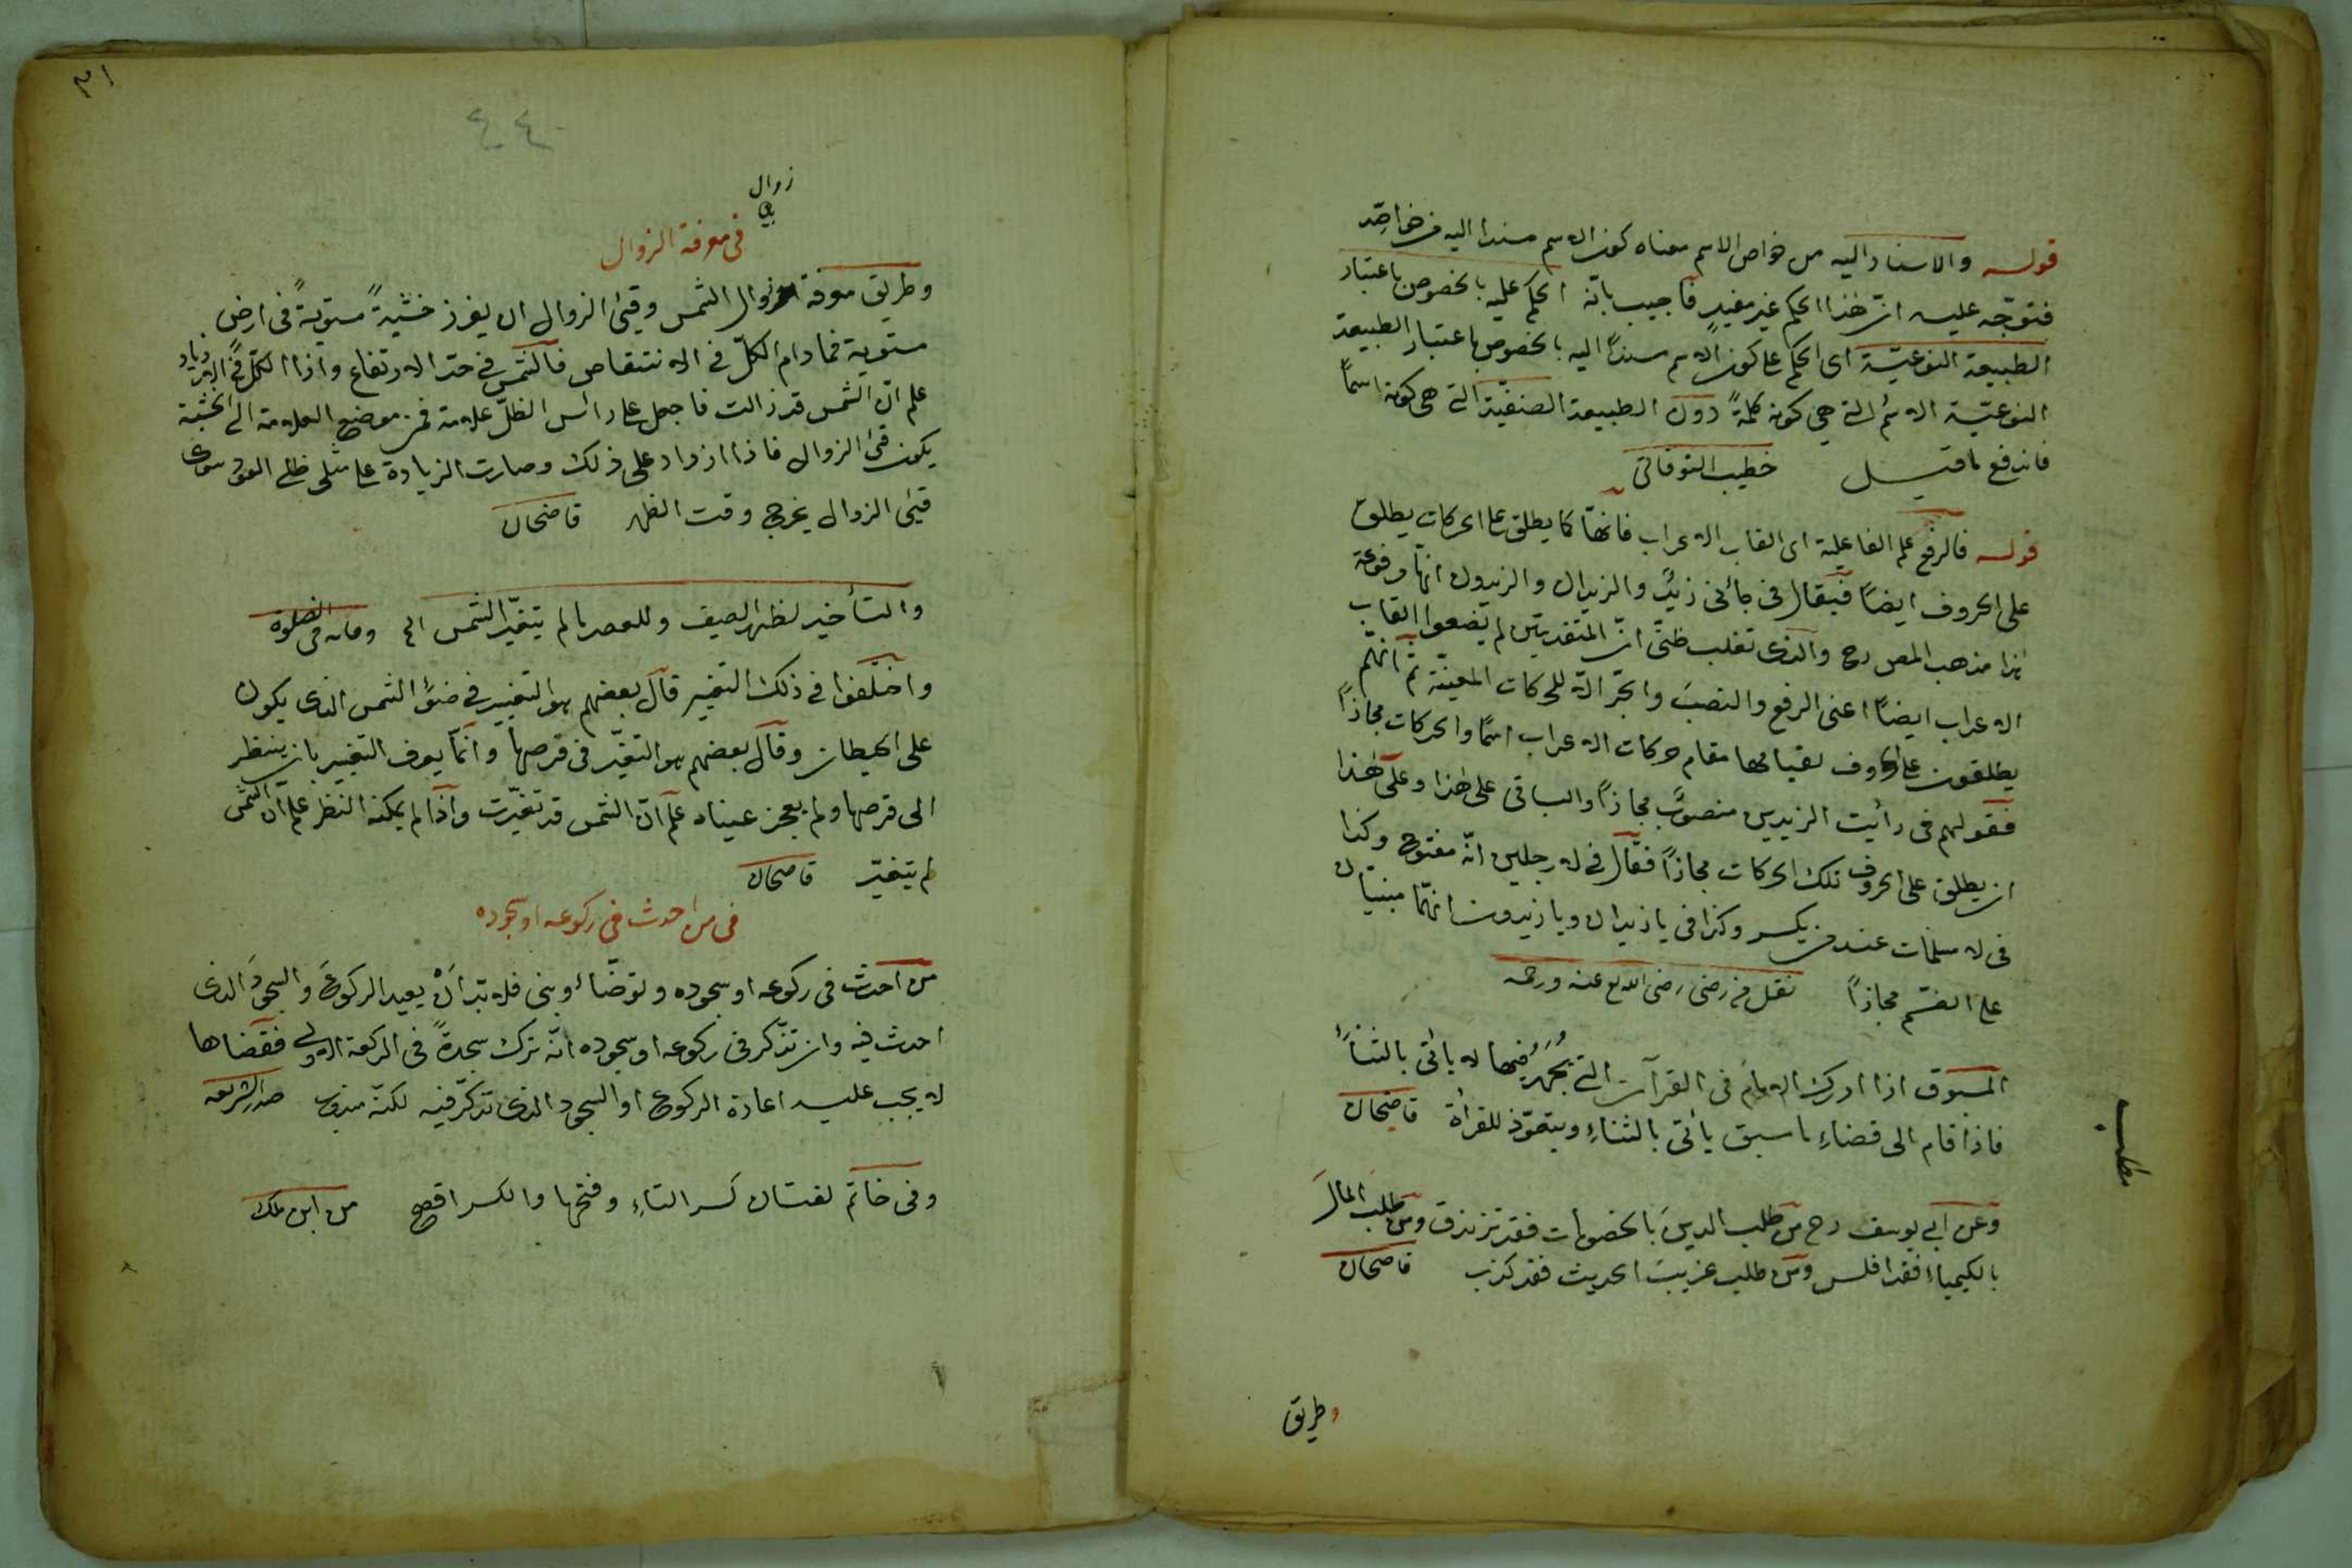 قوله والاسناد اليه من خواص الاسم معناه كون الاسم مسندا اليه من خواصّه
فتوجّه عليه انّ هذا الحكم غير مفيد فاجيب بانّه الحكم عليه بالخصوص باعتبار
الطبيعة النوعيّة اى الحكم على كون الاسم مسندًا اليه بالخصوص باعتبار الطبيعة
النوعيّة التى هى كونه كلمةً دون الطبيعة الصنفيّة التى هى كونه اسمًا
فاندفع ما قيل خطيب التوقاتى
قوله فالرفع علم الفاعلية اى القاب الاعراب فانها كما يطلق على الحركات يطلق
على الحروف ايضًا فيقال فى جائنى زيدٌ والزيدان والزيدون انّها مرفوعة
هذا مذهب المص رح والذى تغلب ظنّى انّ المتقدمين لم يضعوا القاب
الاعراب ايضًا اعنى الرفع والنصب والجرّ الّا للحركات المعيّنة ثمّ انّهم
يطلقون على الحروف لقيامها مقام حركات الاعراب اسمًا والحركات مجازًا
فقولهم فى رأيت الزيدين منصوبٌ مجازًا والباقى على هذا وعلى هذا
ان يطلق على الحروف تلك الحركات مجازًا فقال فى لا رجلين انّه مفتوح وكذا
فى لا مسلمات عند من يكسر وكذا فى يا زيدان ويا زيدون انّهما مبنيّان
على الضّم مجازًا نقل من رضى رضى الله تع عنه ورحمه
المسبوق اذا ادرك الامام فى القرآت التى يُجْهَرُ فيها لا يأتى بالثناءِ
فاذا قام الى قضاءِ ما سبق يأتى بالثناءِ ويتعوّذ للقرأة قاضيخان
مطلب
وعن ابى يوسف رح من طلب الدين بالخصومات فقد تزندق ومن طلب المال
بالكيمياء فقد افلس ومن طلب غريب الحديث فقد كذب قاضيخان
وطريق
٣١
٤٤
زوال
فى معرفة الزوال
وطريق معرفة زوال الشمس وفيئ الزوال ان يغرز خشبةً مستويةً فى ارض
مستوية فما دام الظلّ فى الانتقاص فالشمس فى حدّ الارتفاع واذا الظلّ فى الازدياد
علم انّ الشمس قد زالت فاجعل على رأس الظلّ علامة فمن موضع العلامة الى الخشبة
يكون فئ الزوال فاذا ازداد على ذلك وصارت الزيادة على مثلى ظل العود سوى
فيئ الزوال يخرج وقت الظهر قاضيخان
والتأخير لظهر الصيف وللعصر ما لم يتغيّر الشمس الخ
واختلفوا فى ذلك التغير قال بعضهم هو التغيير فى ضوءِ الشمس الذى يكون
على الحيطان وقال بعضهم هو التغيّر فى قرصها وانّما يعرف التغيير بان ينظر
الى قرصها ولم يعجز عيناه علم انّ الشمس قد تغيّرت واذا لم يمكنه النظر علم ان الشمس
لم يتغيّر قاضيخان
فى من احدث فى ركوعه او سجوده
من احدث فى ركوعه او سجوده وتوضّاء وبنى فلا بدّ انْ يعيد الركوعَ والسجودَ الذى
احدث فيه وان تذّكر فى ركوعه او سجوده انّه ترك سجدةً فى الركعة الاولى فقضاها
لا يجب عليه اعادة الركوع او السجود الذى تذكرّ فيه لكنّه مندوب صدر الشريعه
وفى خاتم لغتان كسر التاءِ وفتحها والكسر افصح من ابن ملك